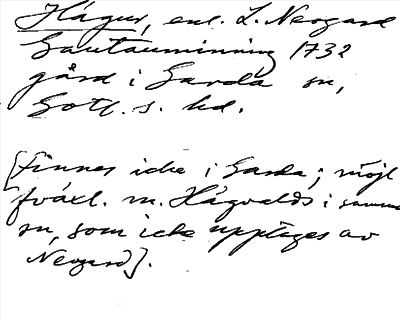 Hágur, enl. L. Neogard
Gautauminning 1732
gård i Garda sn,
Gotl. s. hd.
[Finnes icke i Garda; möjl
förväxl. m. Hágvalds i samma
sn, som icke upptages av
Neogard].